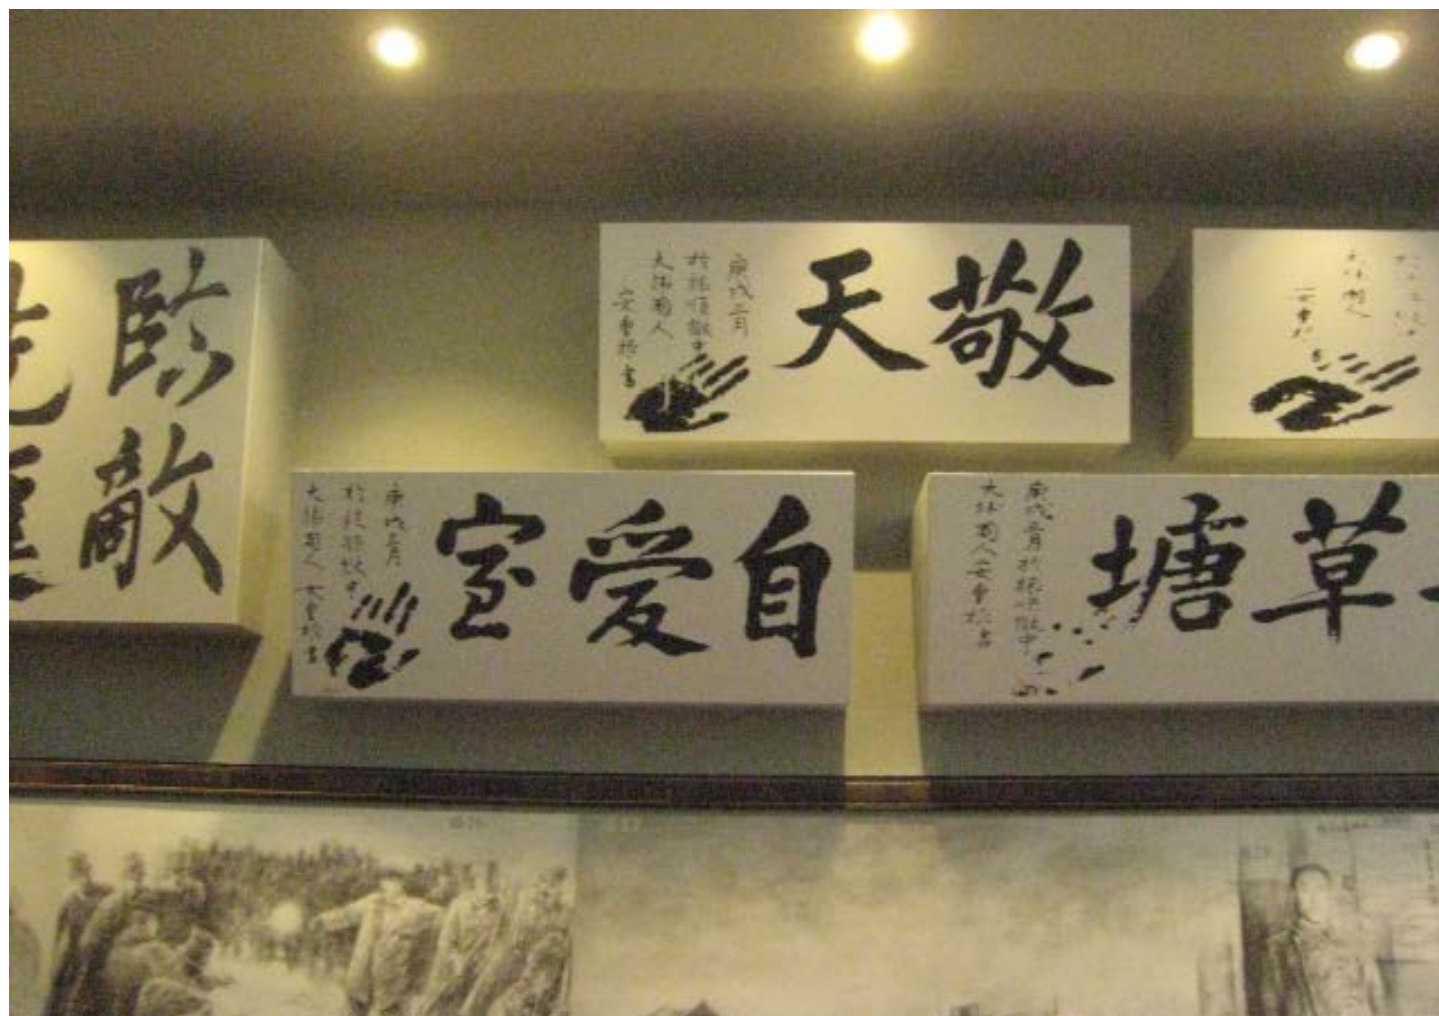 臨敵
敬天
庚戌三月
於旅順獄中
大韓國人
安重根書
自愛室
庚戌三月
於旅順獄中
大韓國人 安重根書
草塘
庚戌三月於旅順獄中
大韓國人安重根書